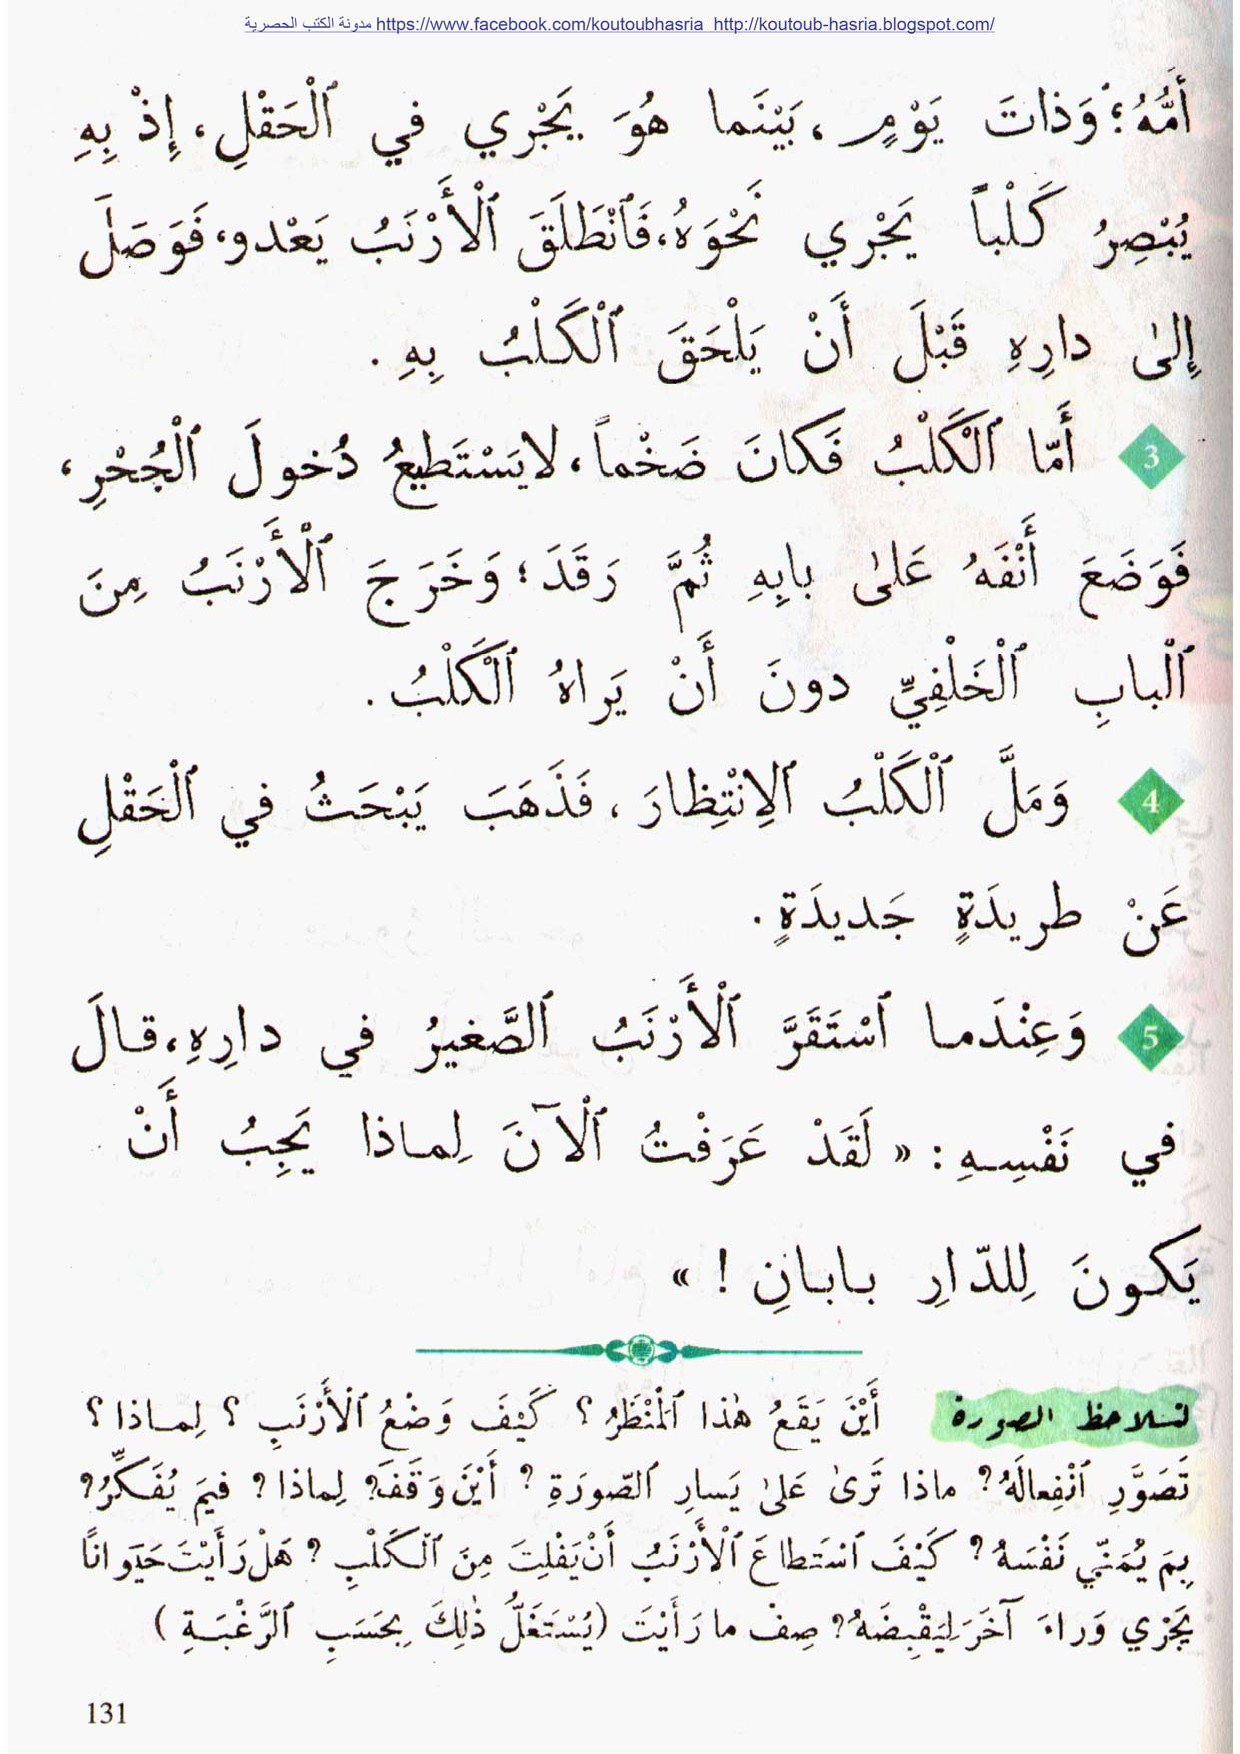 مدونة الكتب الحصرية https://www.facebook.com/koutoubhasria http://koutoub-hasria.blogspot.com/
أُمُّهُ؛ وَذاتَ يَوْمٍ ، بَيْنَما هُوَ يَجْري في ٱلْحَقْلِ ، إِذْ بِهِ
يُبْصِرُ كَلْباً يَجْري نَحْوَهُ، فَٱنْطَلَقَ ٱلْأَرْنَبُ يَعْدو، فَوَصَلَ
إِلىٰ دارِهِ قَبْلَ أَنْ يَلْحَقَ ٱلْكَلْبُ بِهِ .
3 أَمّا ٱلْكَلْبُ فَكانَ ضَخْماً، لا يَسْتَطيعُ دُخولَ ٱلْجُحْرِ ،
فَوَضَعَ أَنْفَهُ عَلىٰ بابِهِ ثُمَّ رَقَدَ؛ وَخَرَجَ ٱلْأَرْنَبُ مِنَ
ٱلْبابِ ٱلْخَلْفِيِّ دونَ أَنْ يَراهُ ٱلْكَلْبُ .
4 وَمَلَّ ٱلْكَلْبُ ٱلِانْتِظارَ ، فَذَهَبَ يَبْحَثُ في ٱلْحَقْلِ
عَنْ طَريدَةٍ جَديدَةٍ .
5 وَعِنْدَما ٱسْتَقَرَّ ٱلْأَرْنَبُ ٱلصَّغيرُ في دارِهِ، قالَ
في نَفْسِهِ : « لَقَدْ عَرَفْتُ ٱلْآنَ لِماذا يَجِبُ أَنْ
يَكونَ لِلدّارِ بابانِ ! »
لنلاحظ الصورة أَيْنَ يَقَعُ هٰذا ٱلْمَنْظَرُ ؟ كَيْفَ وَضْعُ ٱلْأَرْنَبِ ؟ لِماذا ؟
تَصَوَّرِ ٱنْفِعالَهُ؟ ماذا تَرىٰ عَلىٰ يَسارِ ٱلصّورَةِ ؟ أَيْنَ وَقَفَ؟ لِماذا ؟ فيمَ يُفَكِّرُ؟
بِمَ يُمَنّي نَفْسَهُ ؟ كَيْفَ ٱسْتَطاعَ ٱلْأَرْنَبُ أَنْ يَفْلِتَ مِنَ ٱلْكَلْبِ ؟ هَلْ رَأَيْتَ حَيَوانًا
يَجْري وَراءَ آخَرَ لِيَقْبِضَهُ؟ صِفْ ما رَأَيْتَ (يُسْتَغَلُّ ذٰلِكَ بِحَسَبِ ٱلرَّغْبَةِ )
131